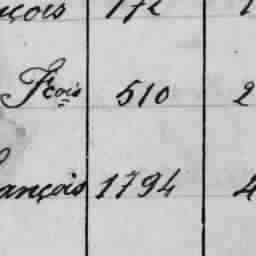 çois 172
Fçois 510 2
ançois 1794 4